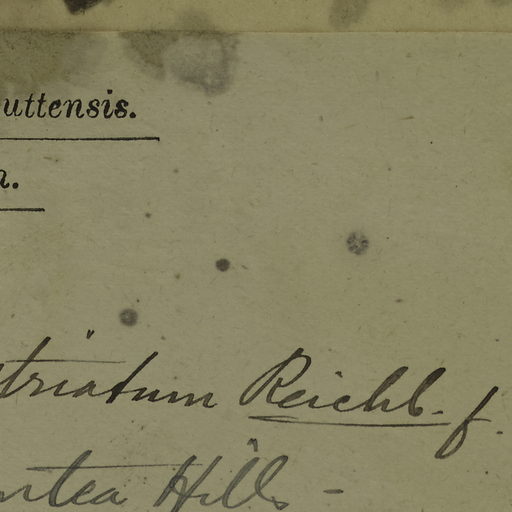 uttensis.
n.
striatum Reichb. f.
ntea Hills -